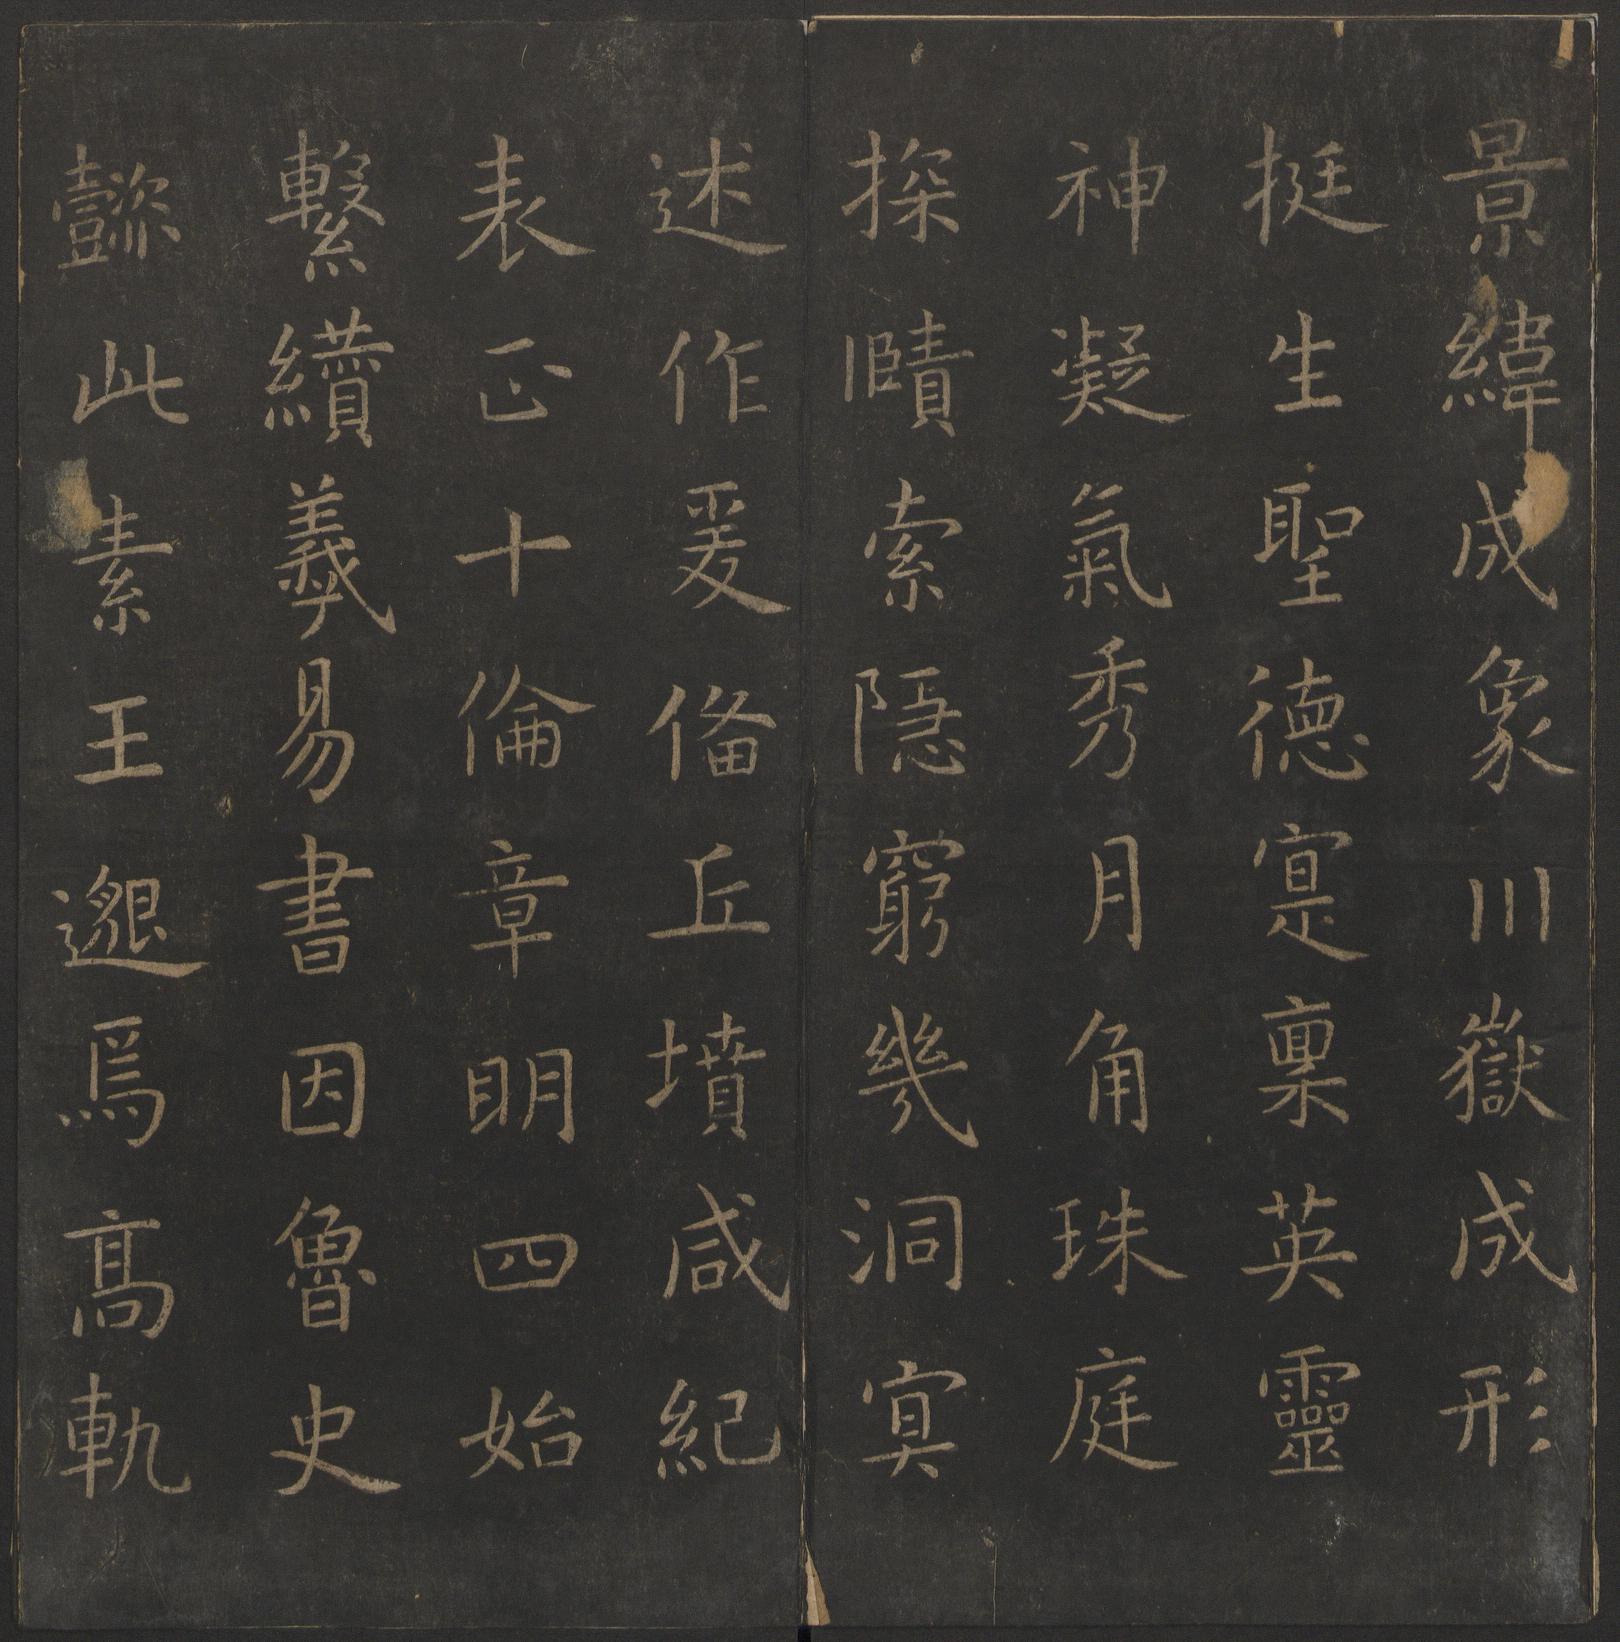 景緯成象川嶽成形
挺生聖德寔稟英靈
神凝氣秀月角珠庭
探賾索隱窮幾洞冥
述作爰俻丘墳咸紀
表正十倫章明四始
繫纘羲易書因魯史
懿此素王邈焉髙軌